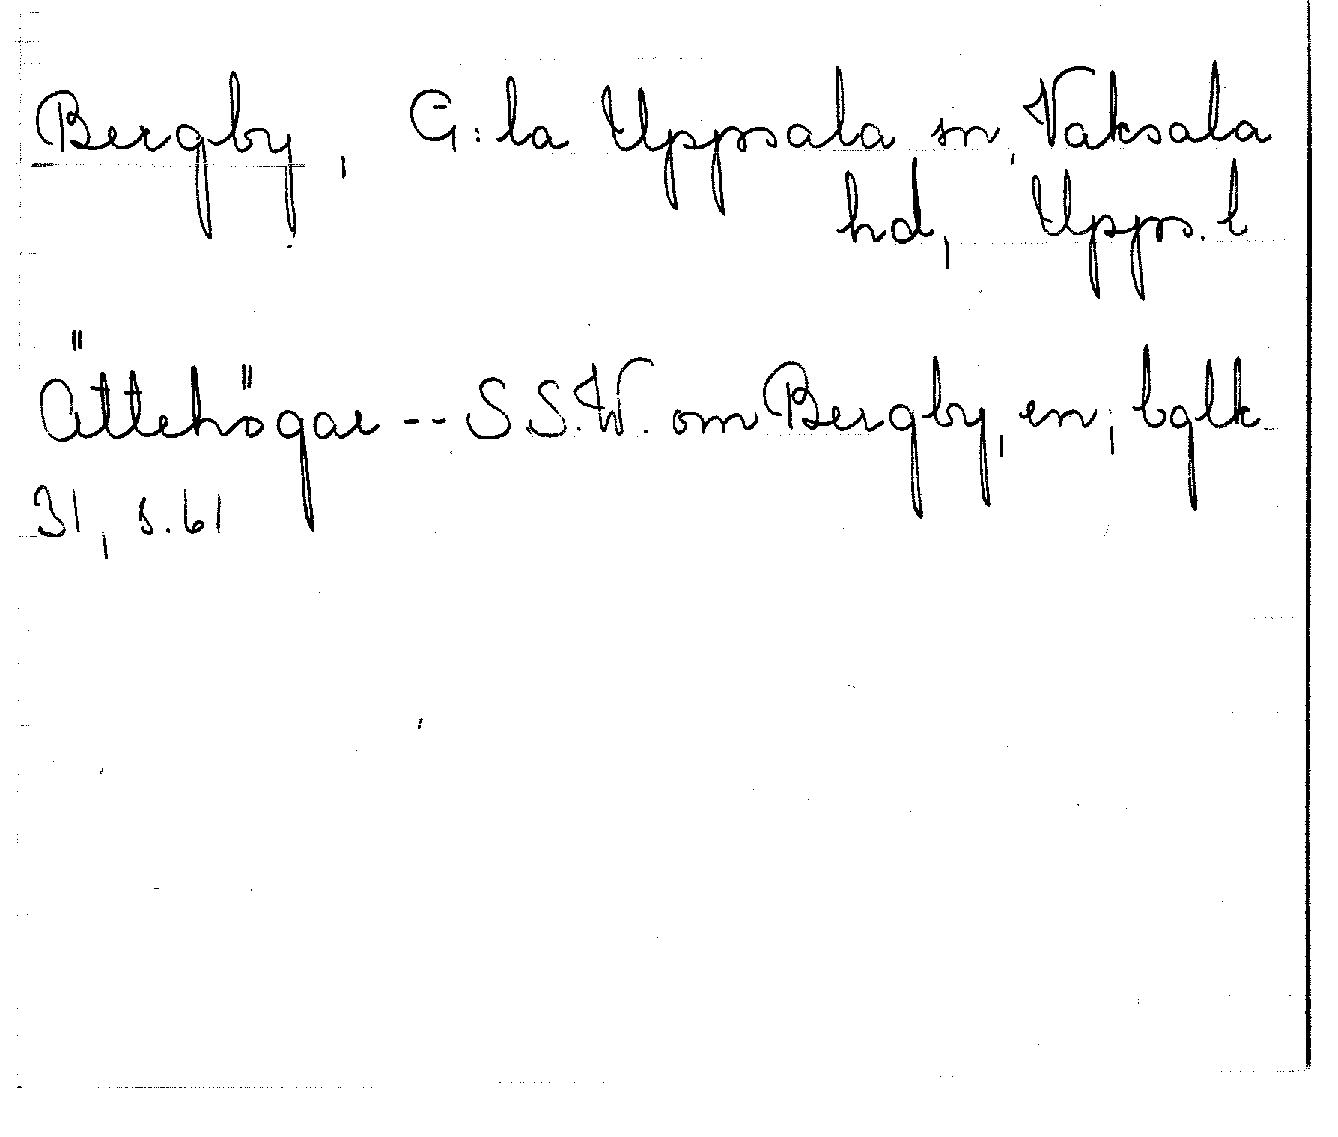 Bergby, G:la Uppsala sn, Vaksala
hd, Upps. l
Ättehögar -- S S.W. om Bergby, en; bglk
31, s. 61